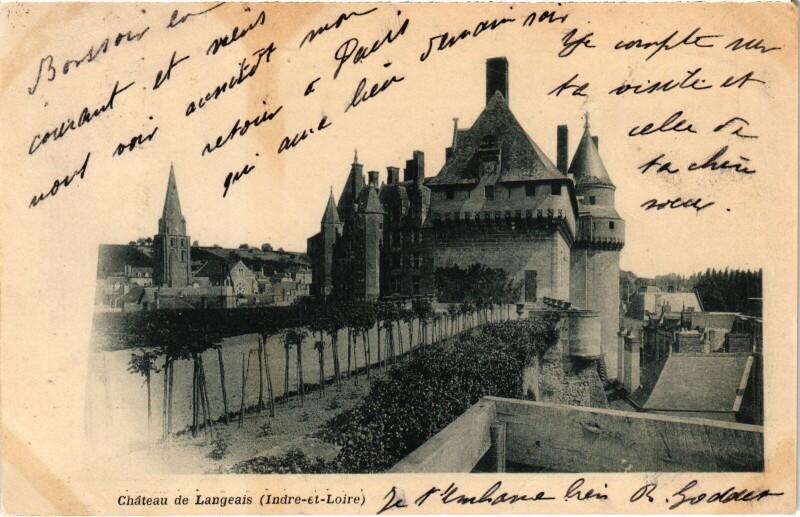 Bonsoir
courant et viens
nous voir aussitôt mon
retour à Paris
qui aura lieu demain soir
Je compte sur
ta visite et
celle de
ta chère
sœur.
Château de Langeais (Indre-et-Loire)
Je t'embrasse bien R.